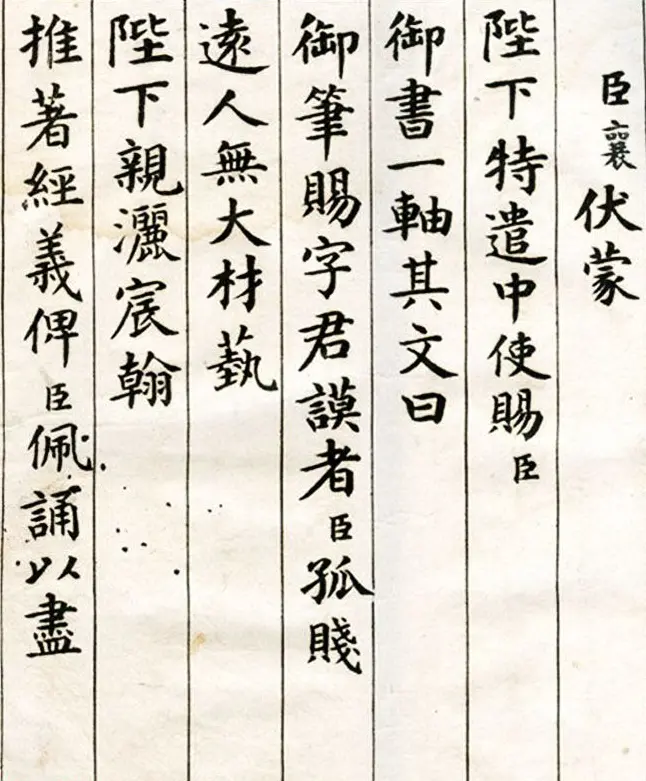 臣襄伏蒙
陛下特遣中使賜臣
御書一軸其文曰
御筆賜字君謨者臣孤賤
遠人無大材藝
陛下親灑宸翰
推著經義俾臣佩誦以盡